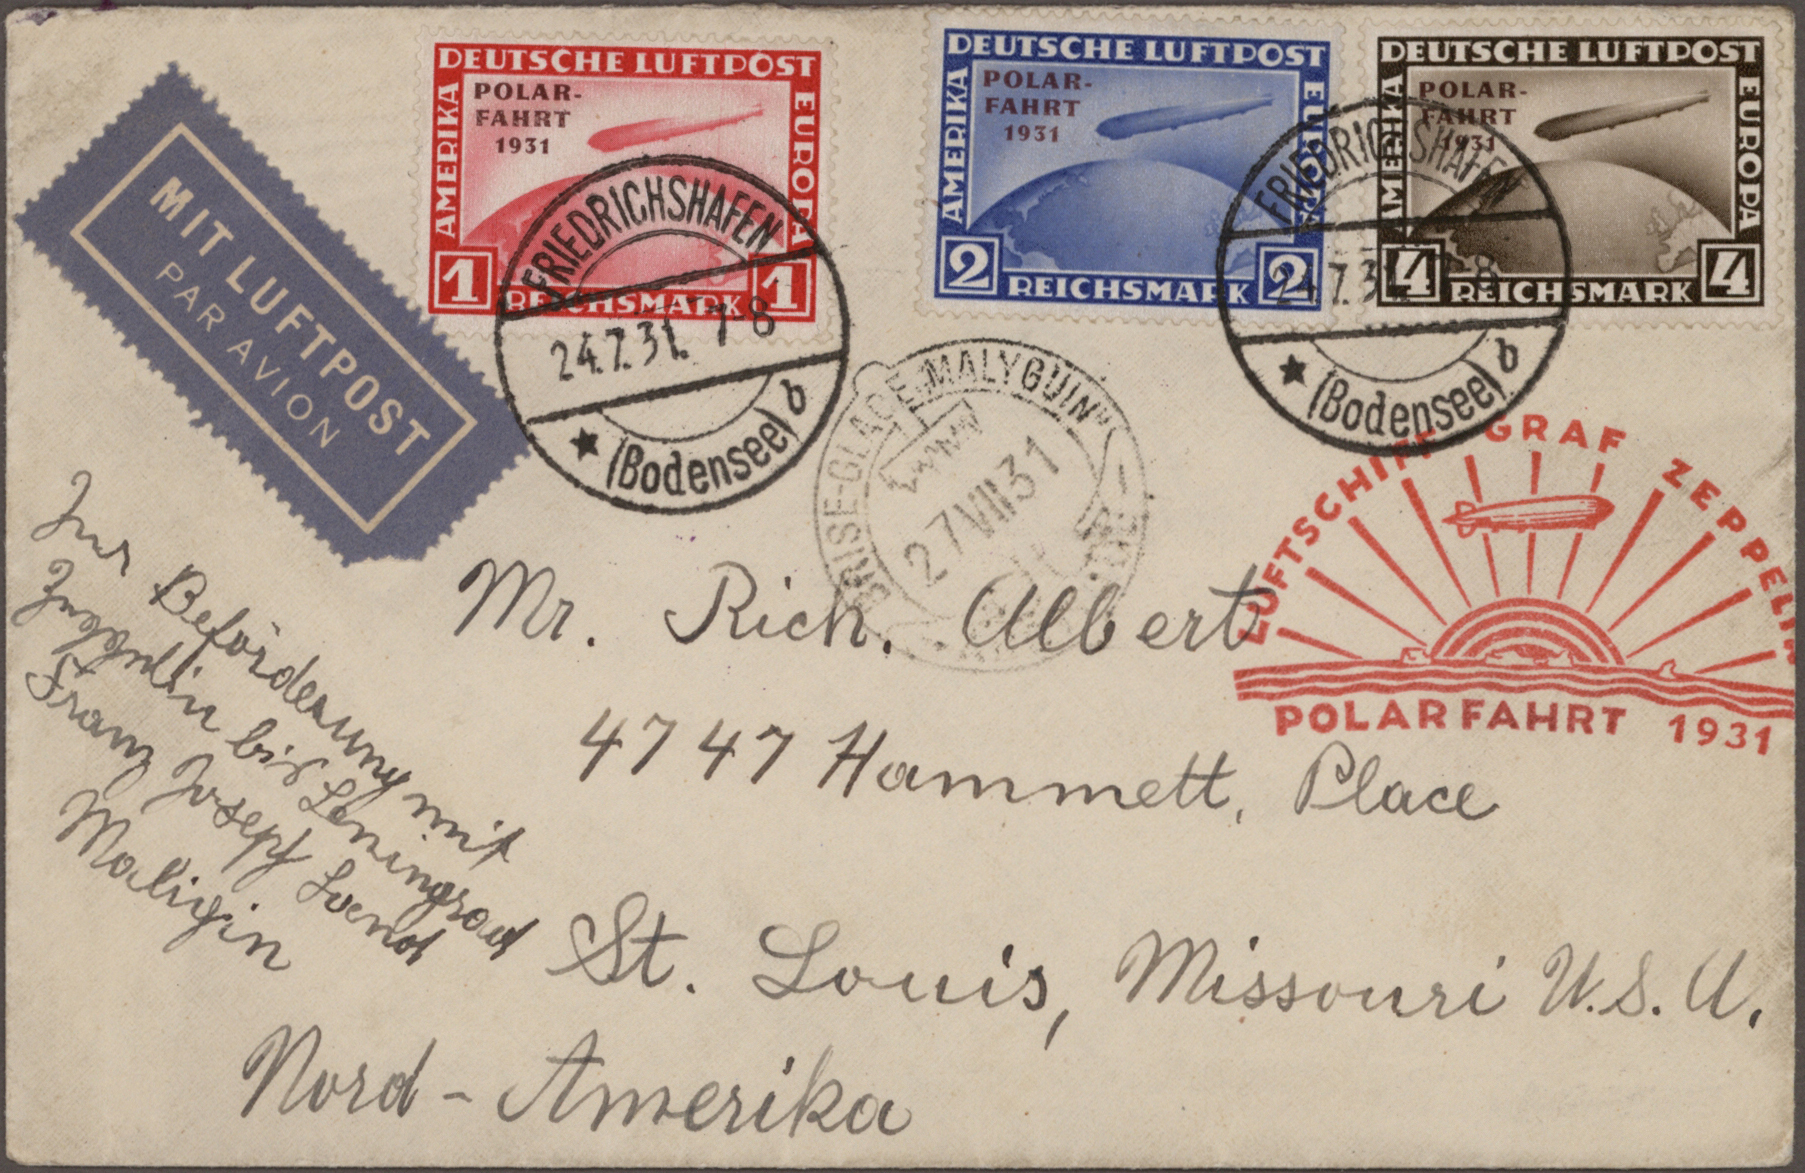 DEUTSCHE LUFTPOST
AMERIKA
EUROPA
POLAR-
FAHRT
1931
1 1
REICHSMARK
DEUTSCHE LUFTPOST
AMERIKA
EUROPA
POLAR-
FAHRT
1931
2 2
REICHSMARK
DEUTSCHE LUFTPOST
AMERIKA
EUROPA
POLAR-
FAHRT
1931
4 4
REICHSMARK
MIT LUFTPOST
PAR AVION
FRIEDRICHSHAFEN
24.7.31. 7-8
(Bodensee) b
FRIEDRICHSHAFEN
24.7.31. 7-8
(Bodensee) b
BRISE-GLACE „MALYGUIN"
27 VII 31
LUFTSCHIFF GRAF ZEPPELIN
POLARFAHRT 1931
Zur Beförderung mit
Zeppelin bis Leningrad
Franz Joseph Land
Maligin
Mr. Rich. Albert
4747 Hammett, Place
St. Louis, Missouri U.S.A.
Nord-Amerika